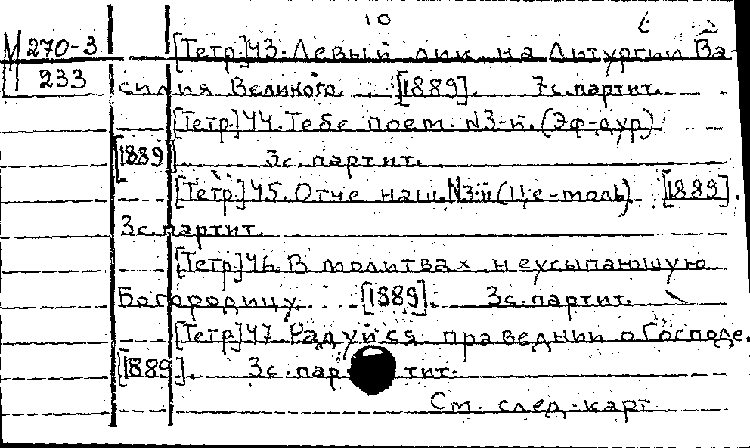 10
М 270-3
233
[Тетр.]43. Левый лик на Литургии Ва-
силия Великого. [1889]. 7с. партит.
[Тетр.]44. Тебе поем. №3-й. (Эф-дур)
[1889]. 3с. партит.
[Тетр.]45. Отче наш. №3-й (Це-моль) [1889].
3с. партит.
[Тетр.]46. В молитвах неусыпающую
Богородицу. [1889]. 3с. партит.
[Тетр.]47. Радуйся праведнии о Господе.
[1889]. 3с. партит.
См. след. карт.